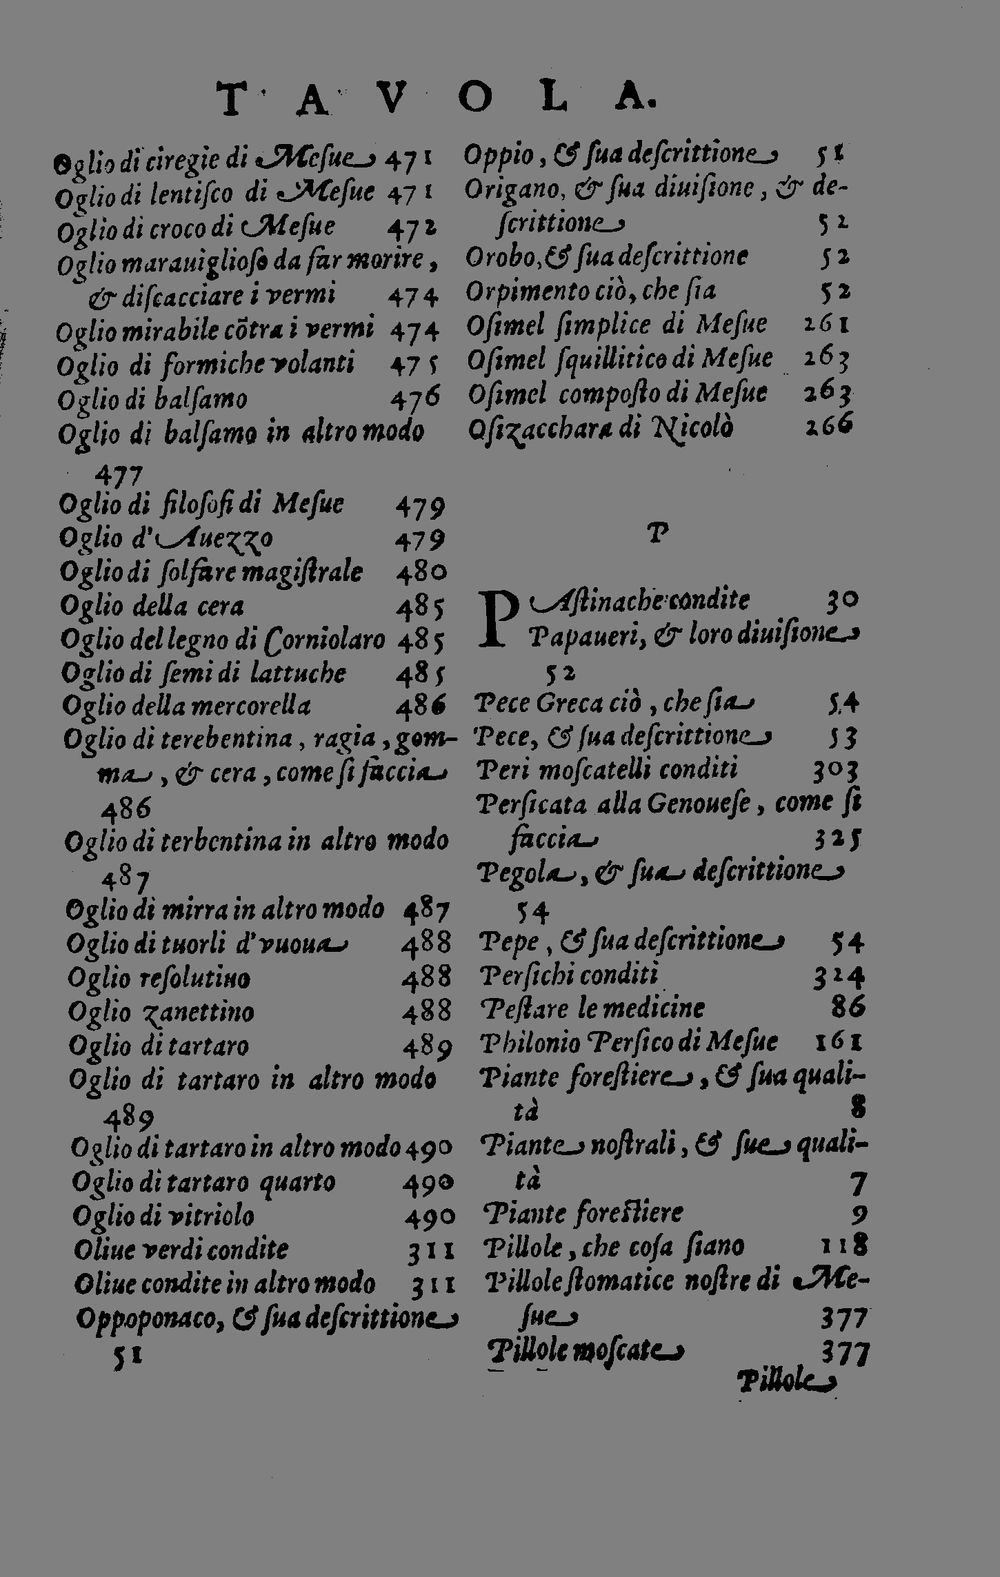 TAVOLA.
Oglio di ciregie di Mesue 471
Oglio di lentisco di Mesue 471
Oglio di croco di Mesue 472
Oglio marauiglioso da far morire,
& discacciare i vermi 474
Oglio mirabile cõtra i vermi 474
Oglio di formiche volanti 475
Oglio di balsamo 476
Oglio di balsamo in altro modo
477
Oglio di filosofi di Mesue 479
Oglio d'Auezzo 479
Oglio di solfare magistrale 480
Oglio della cera 485
Oglio del legno di Corniolaro 485
Oglio di semi di lattuche 485
Oglio della mercorella 486
Oglio di terebentina, ragia, gom-
ma, & cera, come si faccia
486
Oglio di terbentina in altro modo
487
Oglio di mirra in altro modo 487
Oglio di tuorli d'vuoua 488
Oglio resolutiuo 488
Oglio zanettino 488
Oglio di tartaro 489
Oglio di tartaro in altro modo
489
Oglio di tartaro in altro modo 490
Oglio di tartaro quarto 490
Oglio di vitriolo 490
Oliue verdi condite 311
Oliue condite in altro modo 311
Oppoponaco, & sua descrittione
51
Oppio, & sua descrittione 51
Origano, & sua diuisione, & de-
scrittione 52
Orobo, & sua descrittione 52
Orpimento ciò, che sia 52
Osimel simplice di Mesue 261
Osimel squillitico di Mesue 263
Osimel composto di Mesue 263
Osizacchara di Nicolò 266
P
PAstinache condite 30
Papaueri, & loro diuisione
52
Pece Greca ciò, che sia 54
Pece, & sua descrittione 53
Peri moscatelli conditi 303
Persicata alla Genouese, come si
faccia 325
Pegola, & sua descrittione
54
Pepe, & sua descrittione 54
Persichi conditi 324
Pestare le medicine 86
Philonio Persico di Mesue 161
Piante forestiere, & sua quali-
tà 8
Piante nostrali, & sue quali-
tà 7
Piante forestiere 9
Pillole, che cosa siano 118
Pillole stomatice nostre di Me-
sue 377
Pillole moscate 377
Pillole